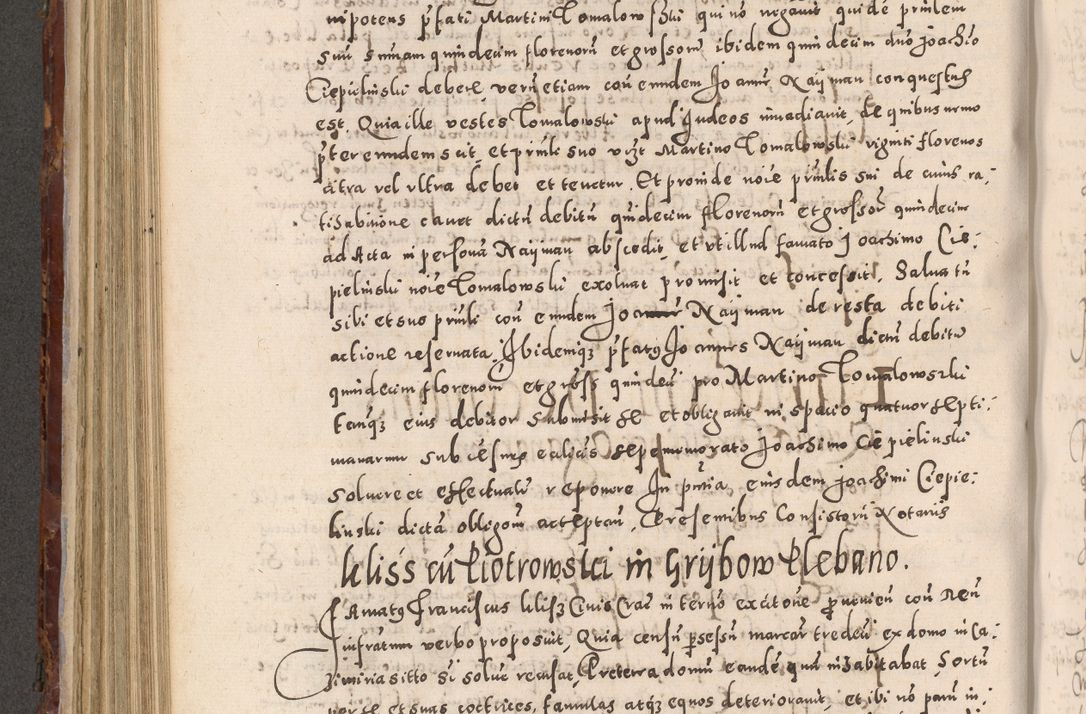 nipotens pʼfati Martini Tomalowsski qui nō negavit quidē prinlem
suū sumam quindecim florenorū et grossorū ibidem quindecim duō Joachīo
Ciepielinski debere, verū etiam con emndem Joannē Naÿman conquestus
est. Quia ille vestes Tomalowski apud Judeos invadiavit, de quibus nrmo
pʼter emndem scit, et prinli suo vʒt Martino Tomalowski viginti florenos
citra vel vltra debet et tenetur. Et proinde noīe prinlis sui de cuius ra:
tihabitione cavet dictū debitū quidecim florenorū et grossorū quindecim
ad Acta in personā Naÿman abscedit, et vt illud famato Joachimo Cie:
pielinski noīe Tomalowski exoluat promisit et concessit. Salua tn̄
sibi et suo prinli con emndem Joannē Naÿman de resta debiti
actione reservata. Ibidemqʒ pʼfatꝰ Joannes Naÿman dictū debitū
quindecim florenorū et gross quindecī pro Martino Tomalowszki
tanqʒ eius debitor submisit se et obligavit in spacio quatuor septi:
manarum sub cēsuris ecclicis sepememorato Joachimo Ciepielinski
soluere et effectualr̄ reponere In pn̄tia eiusdem Joachimi Ciepie:
linski dictā obligoēm acceptan. Presentibus Consistorii Notariis
Klisś cū Piotrowski in Grÿbow Plebano.
Famatꝰ Franciscus Klisʒ Civis Crac̄ in termō ex citatone pro venien con Ven
Infratum verbo proposuit, Quia censū possessū marcar̄ tredecī ex domo in Ca
zimiria sitto si solue recusat, Preterea domū eandē quā inhabitabat, Sortū
per se et suas coctrices, famulas atqʒ equos deterioravit, et ibi nō parū in: